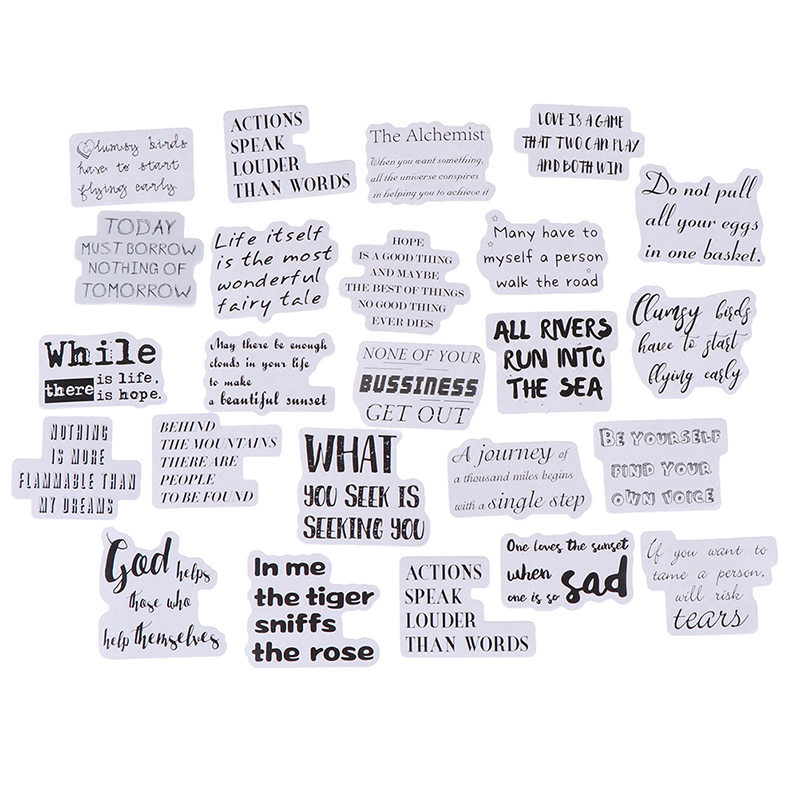 Clumsy birds
have to start
flying early.
ACTIONS
SPEAK
LOUDER
THAN WORDS
The Alchemist
When you want something,
all the universe conspires
in helping you to achieve it
LOVE IS A GAME
THAT TWO CAN PLAY
AND BOTH WIN
Do not pull
all your eggs
in one basket.
TODAY
MUST BORROW
NOTHING OF
TOMORROW
Life itself
is the most
wonderful
fairy tale
HOPE
IS A GOOD THING
AND MAYBE
THE BEST OF THINGS
NO GOOD THING
EVER DIES
Many have to
myself a person
walk the road
Clumsy birds
have to start
flying early
While
there is life,
is hope.
May there be enough
clouds in your life
to make
a beautiful sunset
NONE OF YOUR
BUSSINESS
GET OUT
ALL RIVERS
RUN INTO
THE SEA
NOTHING
IS MORE
FLAMMABLE THAN
MY DREAMS
BEHIND
THE MOUNTAINS
THERE ARE
PEOPLE
TO BE FOUND
WHAT
YOU SEEK IS
SEEKING YOU
A journey of
a thousand miles begins
with a single step
BE YOURSELF
FIND YOUR
OWN VOICE
God helps
those who
help themselves
In me
the tiger
sniffs
the rose
ACTIONS
SPEAK
LOUDER
THAN WORDS
One loves the sunset
when
one is so sad
If you want to
tame a person,
will risk
tears